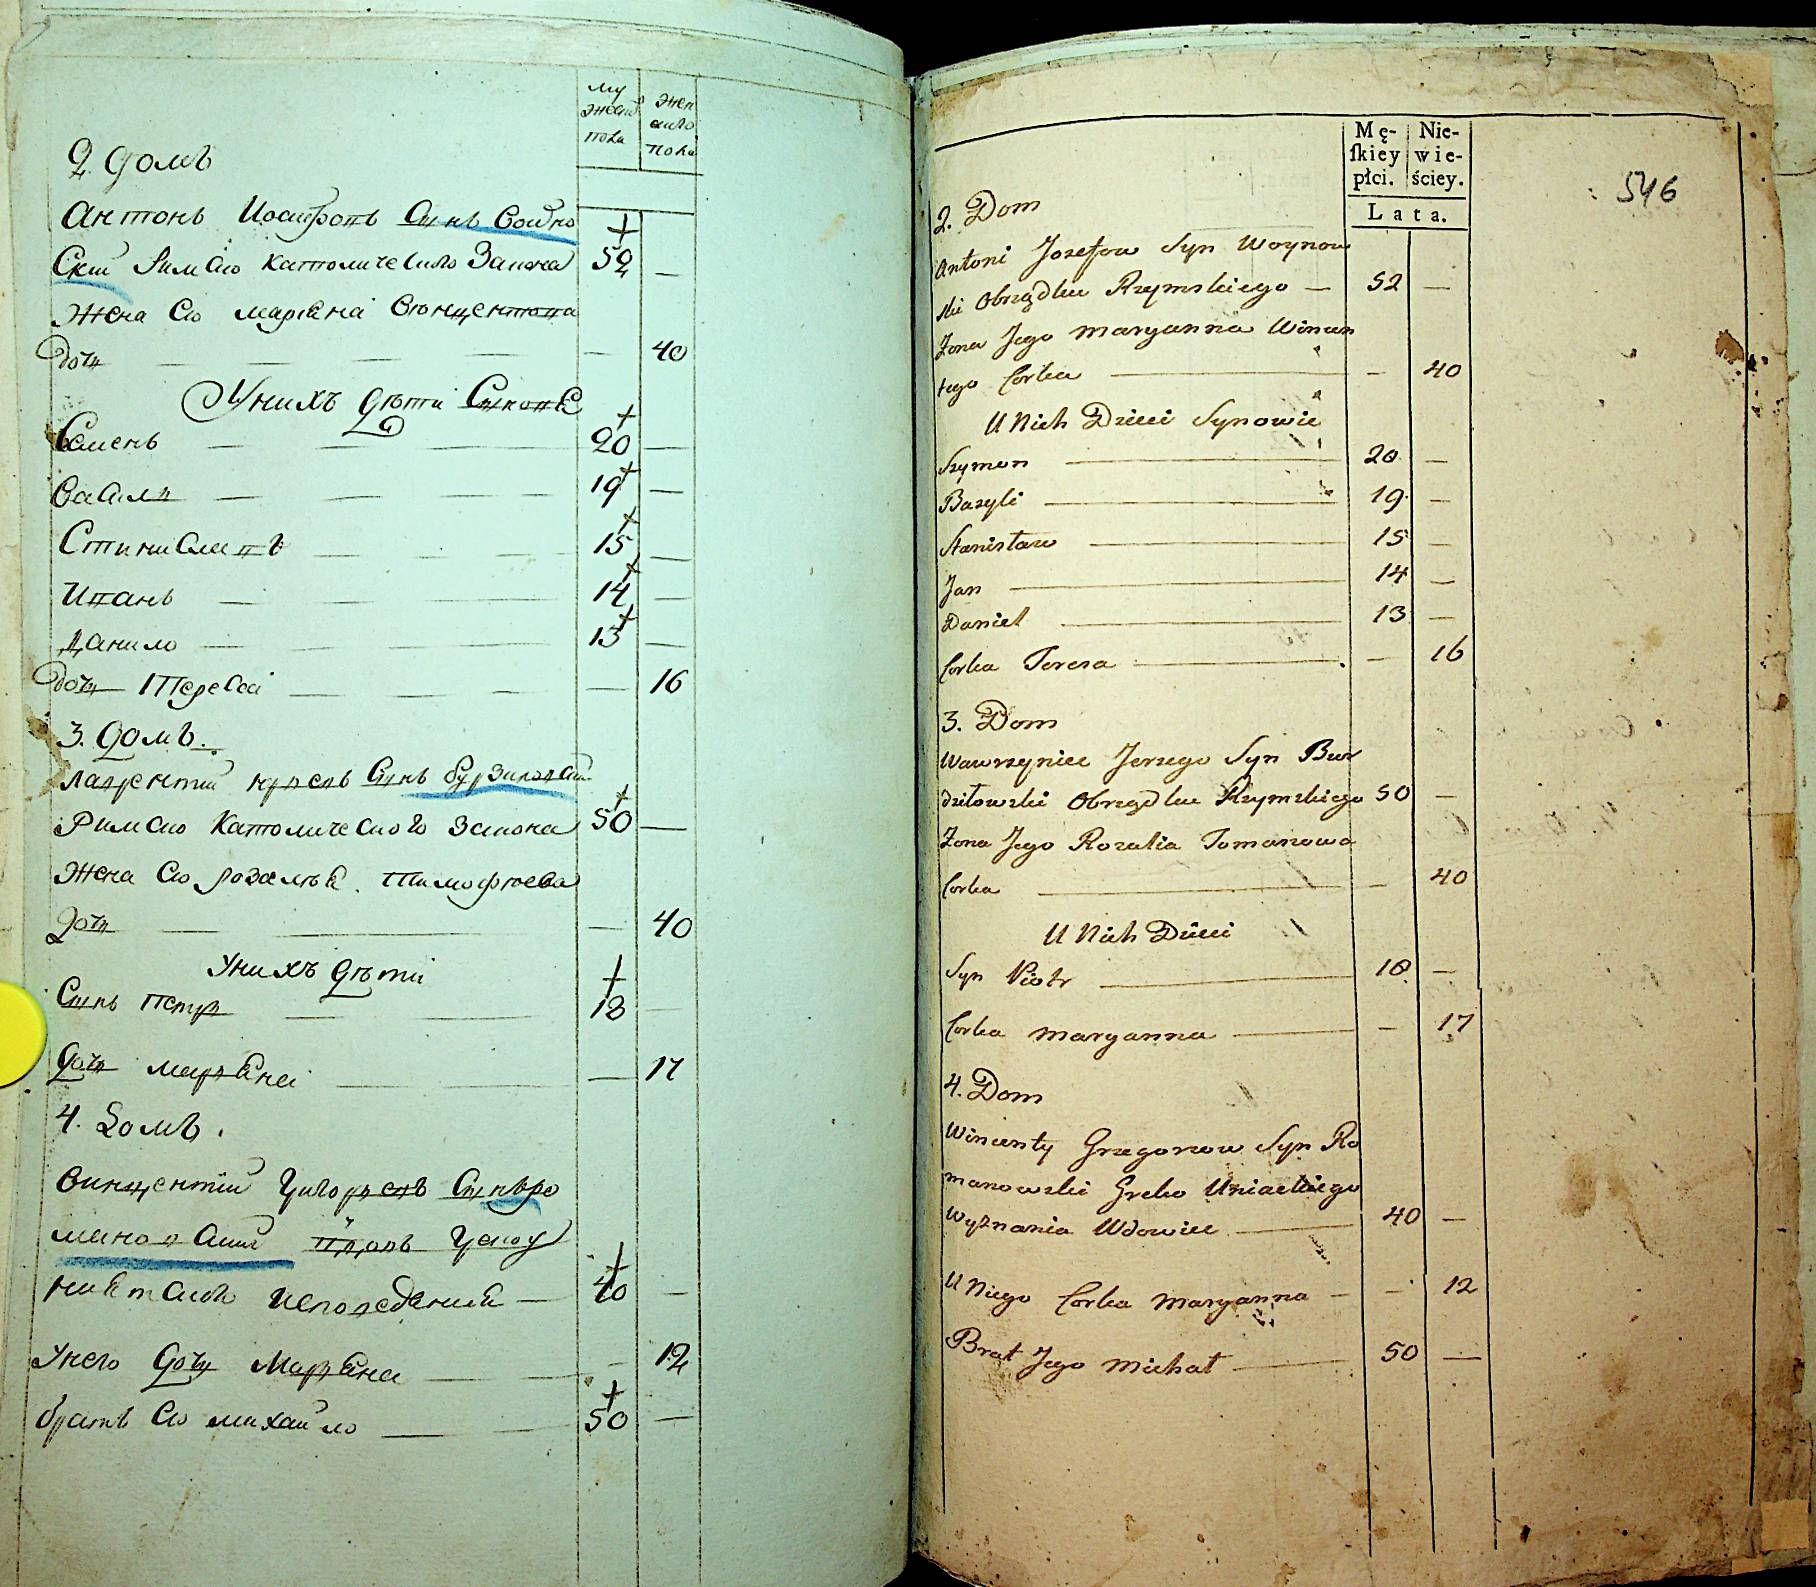 му
жеска
пола
жен
скаго
пола
2 домъ
Антонъ Иосифовъ Сынъ Войно
Скій Римско Католическаго Закона 52 —
Жена Его Маріена Винцентова
дочь — — — — 40
У нихъ дѣти Сыновѣ
Семенъ — — — 20 —
Васили — — — 19 —
Станиславъ — — — 15 —
Иванъ — — — 14 —
Данило — — — 13 —
дочь Тереса — — — — 16
3. домъ.
Лаврентій Сынъ
Римско Католическаго Закона 50 —
Жена Его Розаліѣ Тимофѣева
дочь — — — 40
У нихъ дѣти
Сынъ Петръ — — 18 —
дочь Маріена — — — 17
4. Домъ.
Винцентій Григорьевъ Сынъ Ро
мановскій вдовъ Греко У
ніятскаго Исповеданія — 40 —
У него дочь Маріена — — — 12
братъ Его Михайло — — 50 —
Mę-
ſkiey
płci.
Nie-
wie-
ściey.
Lata.
546
2. Dom
Antoni Jozefow Syn Woynow
ski Obrządku Rzymskiego — 52 —
Zona Jego Maryanna Wincen
tego Corka — — 40
U Nich Dzieci Synowie
Szymon — 20 —
Bazyli — 19 —
Stanisław — 15 —
Jan — 14 —
Daniel — 13 —
Corka Teresa — — 16
3. Dom
Wawrzyniec Jerzego Syn Bur
dziłowski Obrządku Rzymskiego 50 —
Zona Jego Rozalia Tomanowa
Corka — — 40
U Nich Dzieci
Syn Piotr — 18 —
Corka Maryanna — — 17
4. Dom
Wincenty Grzegorzow Syn Ro
manowski Greko Uniackiego
Wyznania Wdowiec — 40 —
U Niego Corka Maryanna — — 12
Brat Jego Michał — 50 —